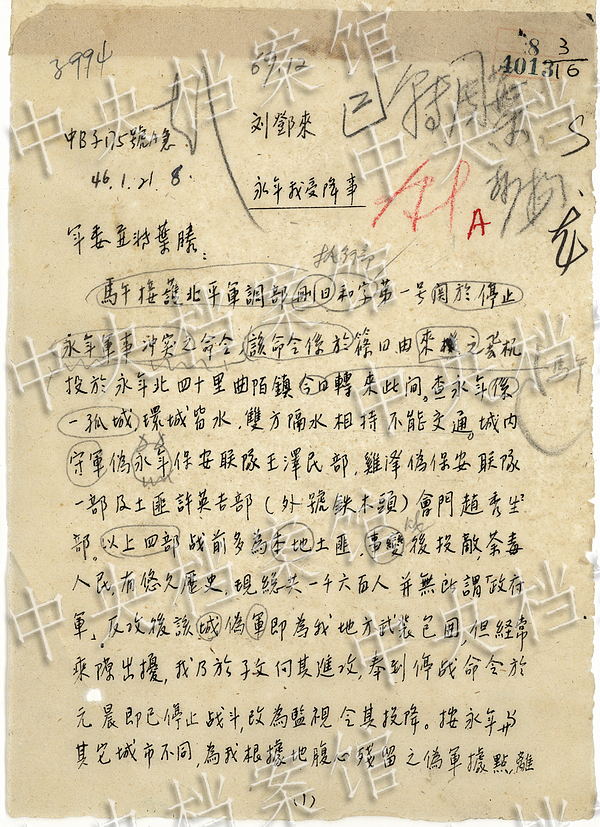 子994
8 3
4013 16
中B子175號A急
刘鄧來
46.1.21.8.
永年我受降事
A
軍委並转葉滕：
馬午接讙北平軍調部刪日和字第一号関於停止
永年軍事冲突之命令，該命令係於篠日由來之飛机
投於永年北四十里曲陌鎮今日轉来此间。查永年係
馬午
一孤城，環城皆水，雙方隔水相持不能交通。城内
守軍偽永年保安联隊王澤民部，雞澤偽保安联隊
一部及土匪許英吉部（外號鉄木頭）會門趙秀生
部。以上四部战前多為本地土匪，事變後投敵荼毒
人民，有悠久歷史，現總共一千六百人並無所謂「政府
軍」。反攻後該城偽軍即為我地方武装包囲，但經常
乘隙出擾，我乃於子文向其進攻，奉到停战命令於
元晨即已停止战斗，改為監視令其投降。按永年与
其它城市不同，為我根據地腹心殘留之偽軍據點，離
(1)
中央档案馆